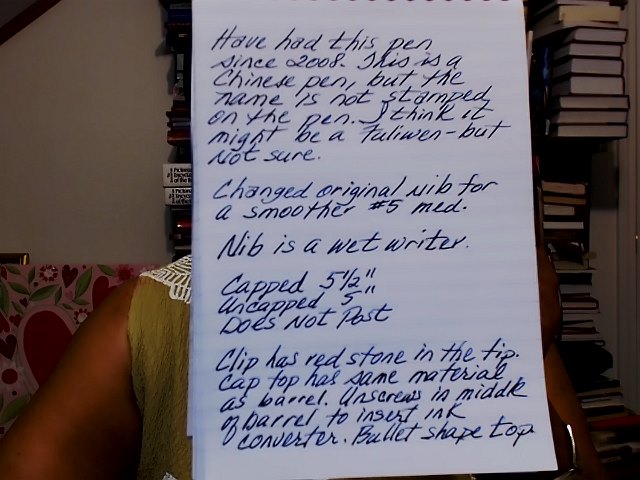 Have had this pen
since 2008. This is a
Chinese pen, but the
name is not stamped
on the pen. I think it
might be a Fuliwen-but
Not sure.
Changed original Nib for
a smoother #5 med.
Nib is a wet writer.
Capped 5 1/2"
Uncapped 5"
Does Not Post
Clip has red stone in the tip.
Cap top has same material
as barrel. Unscrews in middle
of barrel to insert ink
converter. Bullet shape top